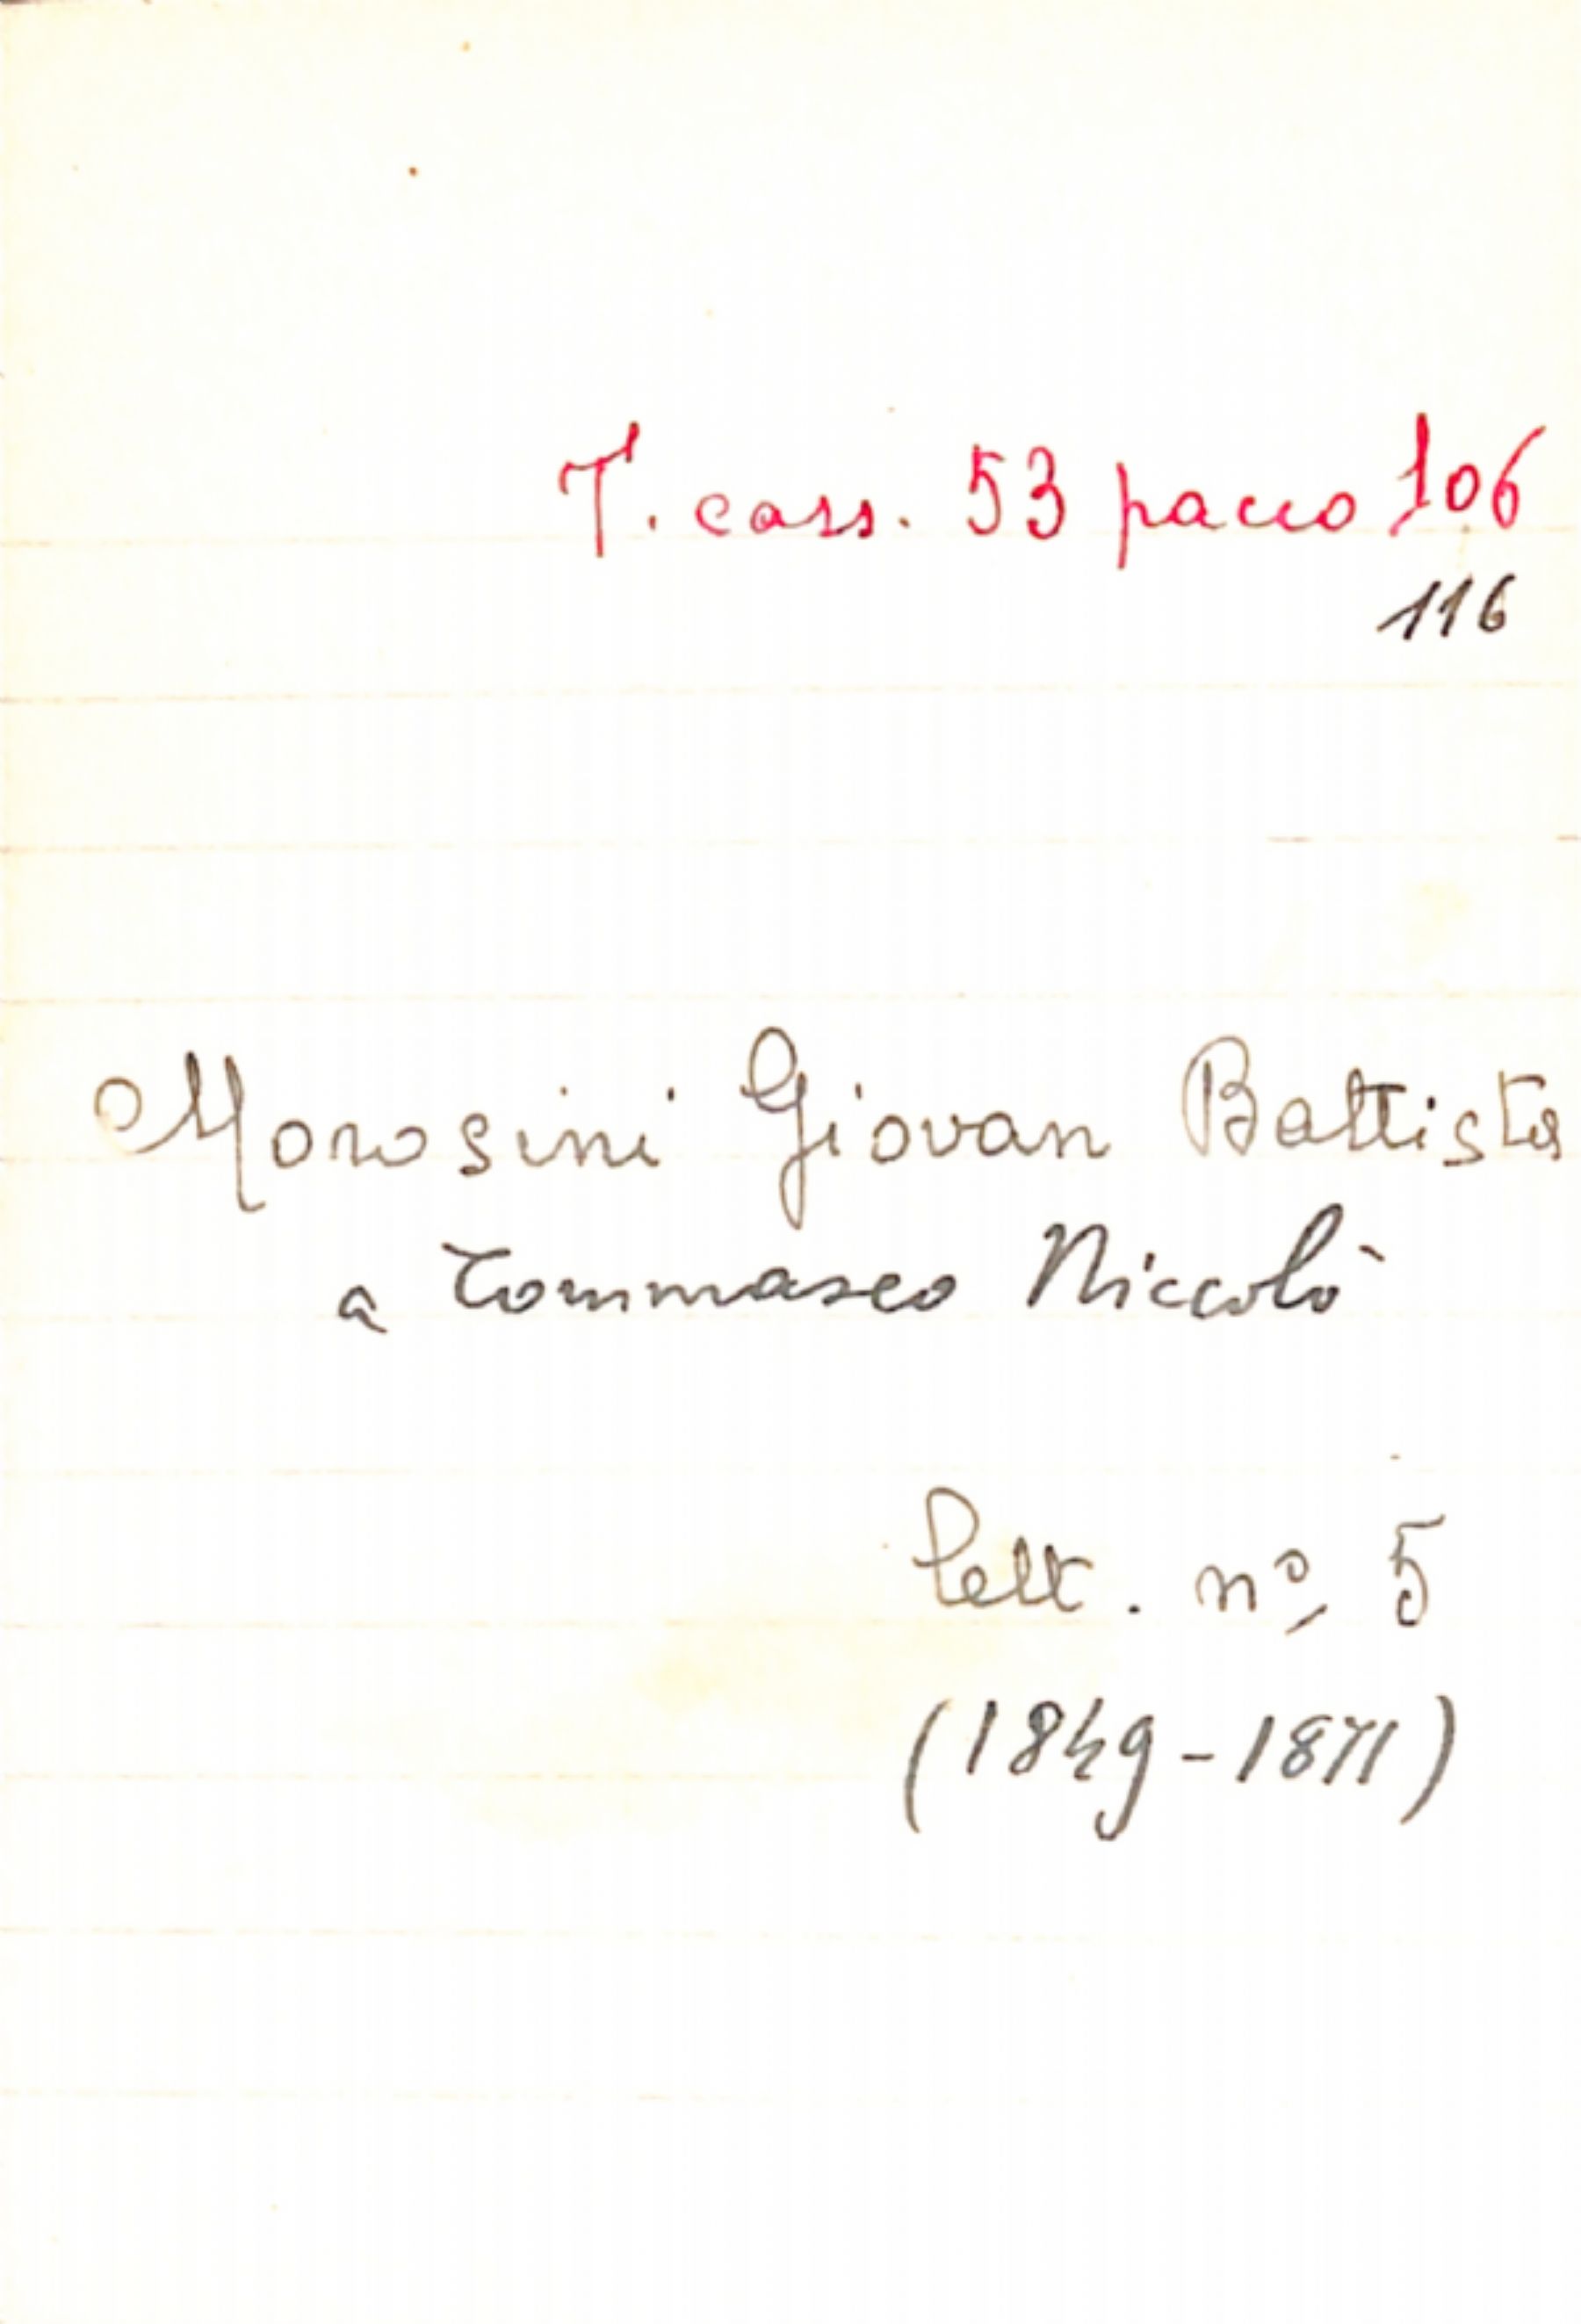 T. cass. 53 pacco 106
116
Morosini Giovan Battista
a Tommaseo Niccolò
lett. nº 5
(1849-1871)